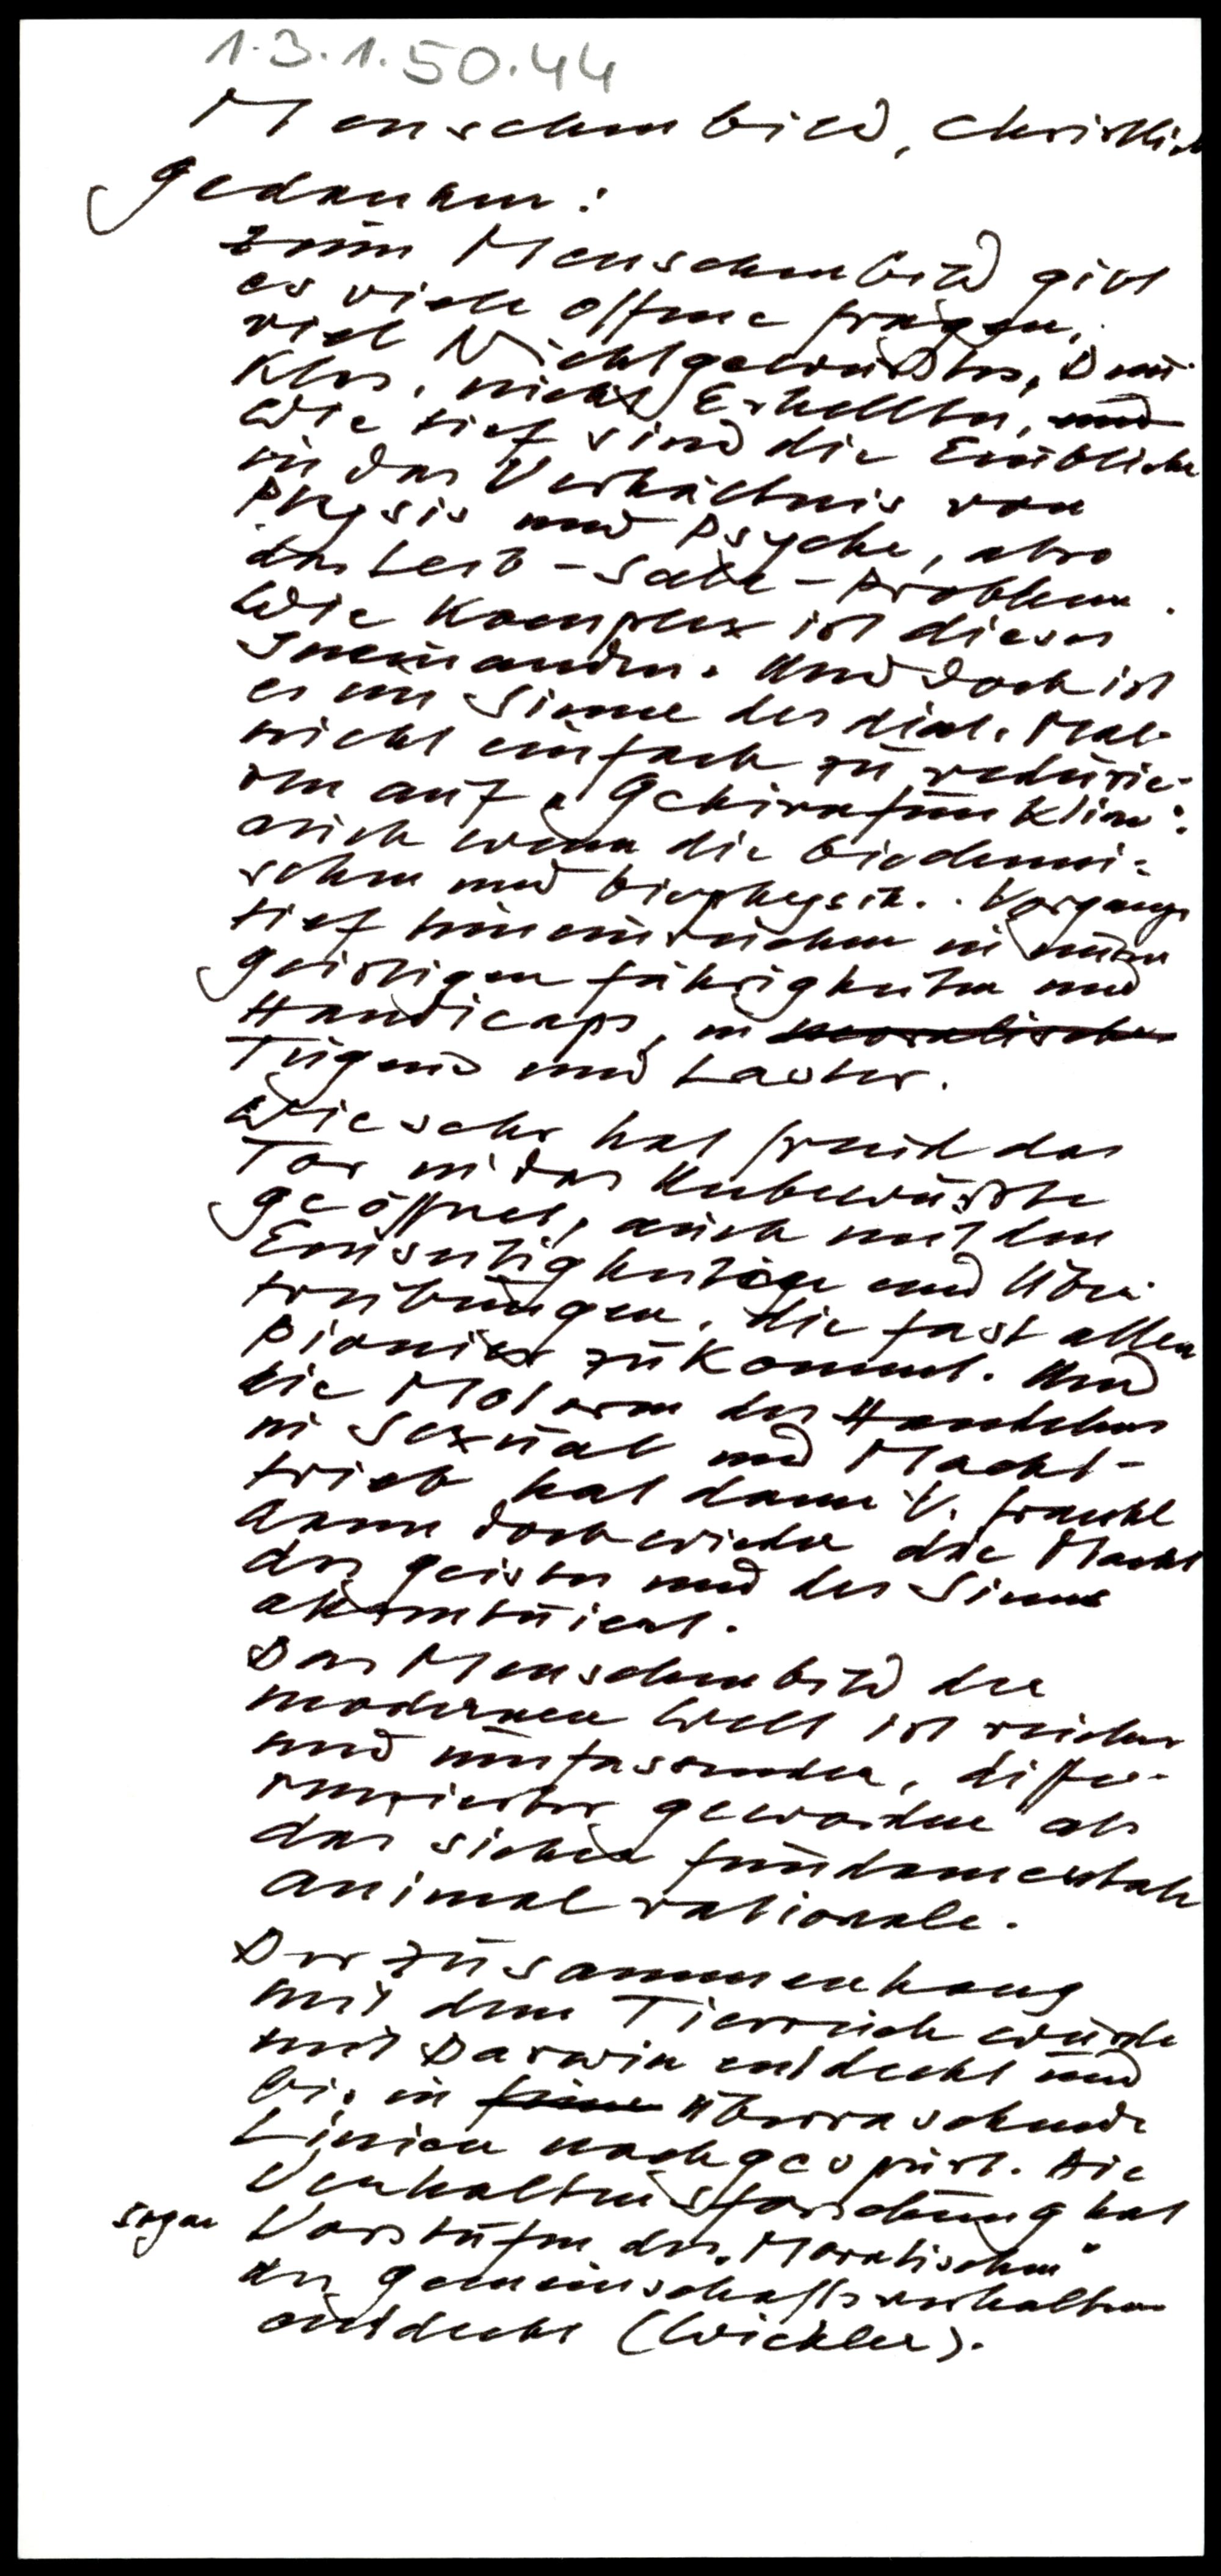 1.3.1.50.44
Menschenbild, christlich
Gedanken:
Zum Menschenbild gibt
es viele offene Fragen,
viel Nichtgewußtes, Dun-
kles, nicht Erhelltes, und
wie tief sind die Einblicke
in das Verhältnis von
Physis und Psyche, also
das Leib-Seele-Problem.
Wie komplex ist dieses
Ineinander. Und doch ist
es im Sinne des dial. Mat.
nicht einfach zu reduzie-
ren auf „Gehirnfunktion".
auch wenn die biochemi-
schen und biophysik. Vorgänge
tief hineinreichen in unsere
geistigen Fähigkeiten und
Handicaps, in moralische
Tugend und Laster.
Wie sehr hat Freud das
Tor in das Unbewußte
geöffnet, auch mit den
Einseitigkeiten und Über-
treibungen, die fast allen
Pionier zukommt. Und
die Motoren des Handelns
in Sexual und Macht-
trieb hat dann V. Frankl
dann doch wieder die Macht
des Geistes und des Sinns
akzentuiert.
Das Menschenbild der
modernen Welt ist reicher
und umfassender, diffe-
renzierter geworden als
das sicher fundamentale
animal rationale.
Der Zusammenhang
mit dem Tierreich wurde
mit Darwin entdeckt und
bis in feine überraschende
Linien nachgespürt. Die
Verhaltensforschung hat
sogar Vorstufen des „Moralischen"
des Gemeinschaftsverhaltens
entdeckt (Wickler).